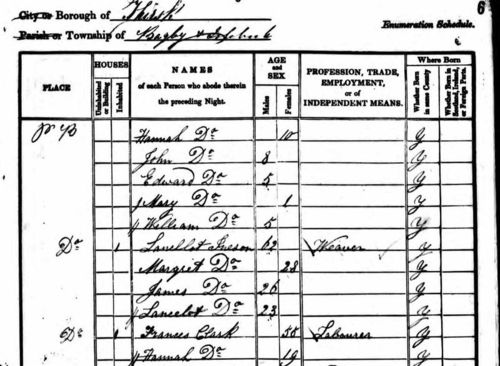 City or Borough of Thirsk
6
Enumeration Schedule.
Parish or Township of Bagby &
PLACE
HOUSES
Uninhabited or Building
Inhabited
NAMES
of each Person who abode therein the preceding Night.
AGE and SEX
Males
Females
PROFESSION, TRADE, EMPLOYMENT, or of INDEPENDENT MEANS.
Where Born
Whether Born in same County
Whether Born in Scotland, Ireland, or Foreign Parts.
Hannah Do 10 y
John Do 8 y
Edward Do 5 y
Mary Do 1 y
William Do 5 y
Do 1 Lancellot 62 Weaver y
Margret Do 28 y
James Do 26 y
Lancelot Do 23 y
Do 1 Frances Clark 58 Labourer y
Hannah Do 19 y